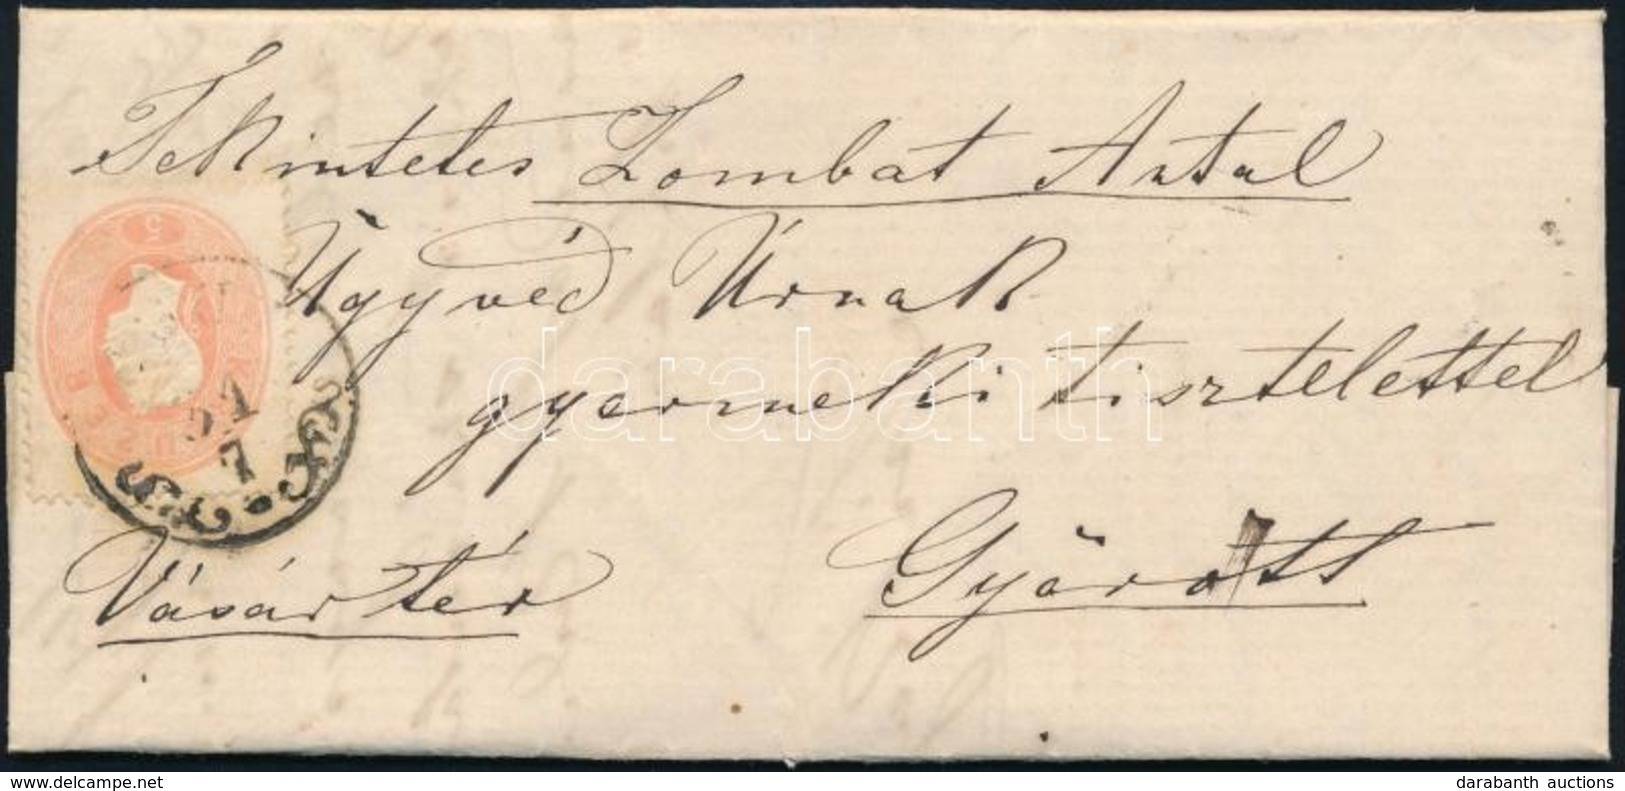 Tekintetes Zombat Antal
Ügyvéd Úrnak
gyermeki tisztelettel
Vásártér
Győrött
5
31
7
darabanth
delcampe.net
darabanth auctions